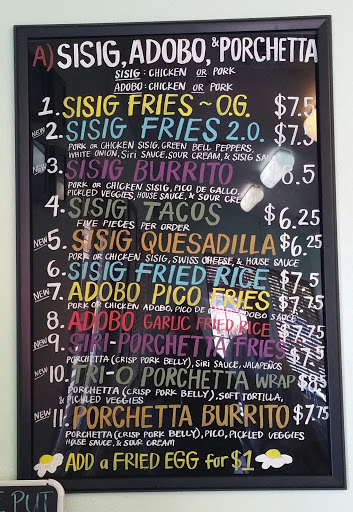 A) SISIG, ADOBO, & PORCHETTA
SISIG: CHICKEN OR PORK
ADOBO: CHICKEN OR PORK
1. SISIG FRIES ~ O.G. $7.5
NEW 2. SISIG FRIES 2.0. $7.5
PORK OR CHICKEN SISIG, GREEN BELL PEPPERS,
WHITE ONION, SIRI SAUCE, SOUR CREAM, & SISIG SAUCE
NEW 3. SISIG BURRITO 8.5
PORK OR CHICKEN SISIG, PICO DE GALLO,
PICKLED VEGGIES, HOUSE SAUCE, & SOUR CREAM
4. SISIG TACOS $6.25
FIVE PIECES PER ORDER
NEW 5. SISIG QUESADILLA $6.25
PORK OR CHICKEN SISIG, SWISS CHEESE, & HOUSE SAUCE
6. SISIG FRIED RICE $7.5
NEW 7. ADOBO PICO FRIES $7.75
PORK OR CHICKEN ADOBO, PICO DE ADOBO SAUCE
8. ADOBO GARLIC FRIED RICE $7.75
NEW 9. SIRI-PORCHETTA FRIES
PORCHETTA (CRISP PORK BELLY), SIRI SAUCE, JALAPEÑOS
NEW 10. TRI-O PORCHETTA WRAP
PORCHETTA (CRISP PORK BELLY), SOFT TORTILLA,
& PICKLED VEGGIES
NEW 11. PORCHETTA BURRITO $7.75
PORCHETTA (CRISP PORK BELLY), PICO, PICKLED VEGGIES
HOUSE SAUCE, & SOUR CREAM
ADD a FRIED EGG for $1
PUT